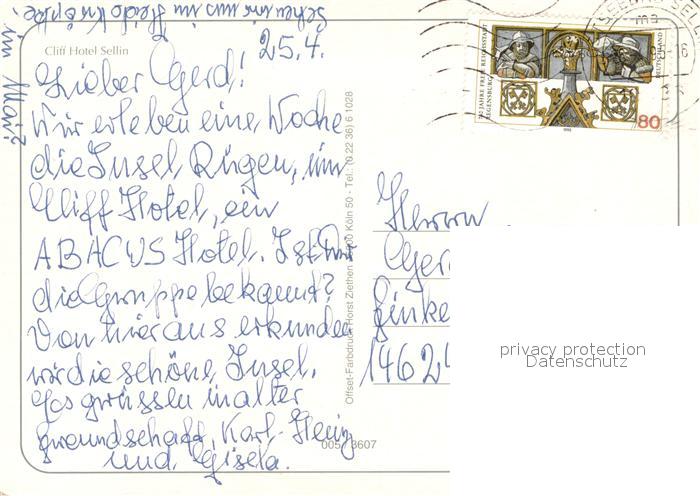 Cliff Hotel Sellin
25.4.
Lieber Gerd!
Wir erleben eine Woche
die Insel Rügen, im
Cliff Hotel, ein
ABACUS Hotel. Ist Dir
die Gruppe bekannt?
Von hier aus erkunden
wir die schöne Insel.
Es grüssen in alter
Freundschaft, Karl-Heinz
und Gisela.
Sehen wir uns im
im Mai?
Herrn
Ger
Finke
14624
privacy protection
Datenschutz
Offset-Farbdruck Horst Ziethen 00 Köln 50 · Tel.: (0 22 36) 6 1028
005 3607
750 JAHRE FREIE REICHSSTADT
REGENSBURG
DEUTSCHLAND
80
1995